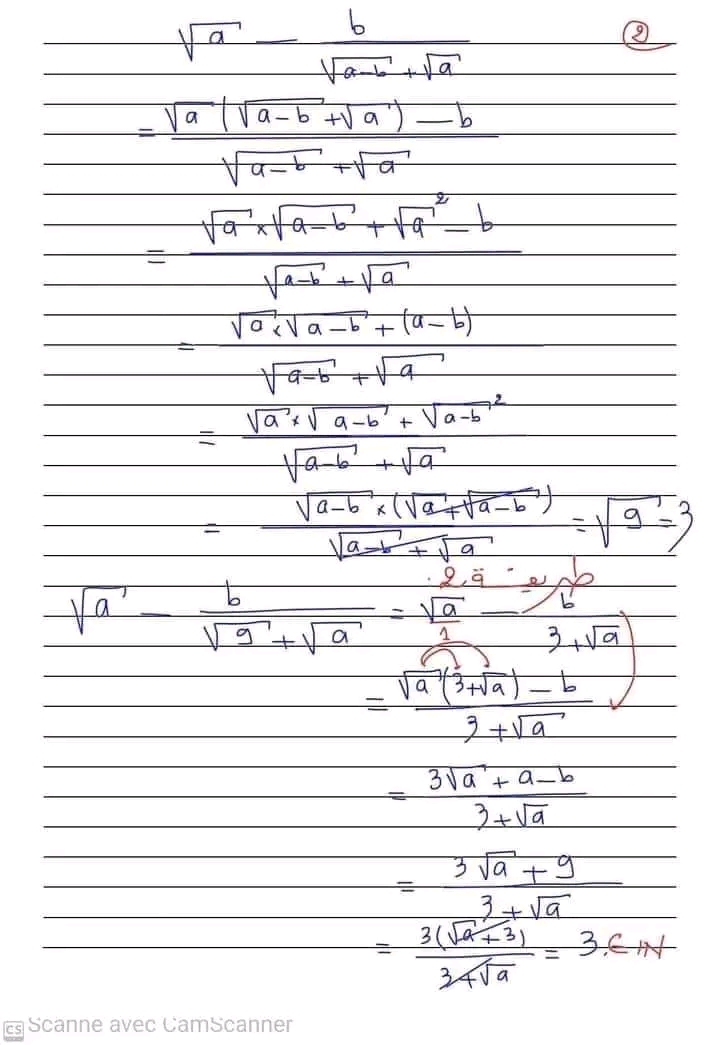 ②
√a − b/(√(a−b) + √a)
= (√a (√(a−b) + √a) − b)/(√(a−b) + √a)
= (√a × √(a−b) + √a² − b)/(√(a−b) + √a)
= (√a × √(a−b) + (a−b))/(√(a−b) + √a)
= (√a × √(a−b) + √(a−b)²)/(√(a−b) + √a)
= (√(a−b) × (√a + √(a−b)))/(√(a−b) + √a) = √9 = 3
طريقة 2.
√a − b/(√9 + √a) = √a/1 − b/(3 + √a)
= (√a (3 + √a) − b)/(3 + √a)
= (3√a + a − b)/(3 + √a)
= (3√a + 9)/(3 + √a)
= (3(√a + 3))/(3 + √a) = 3. ∈ IN
CS Scanné avec CamScanner